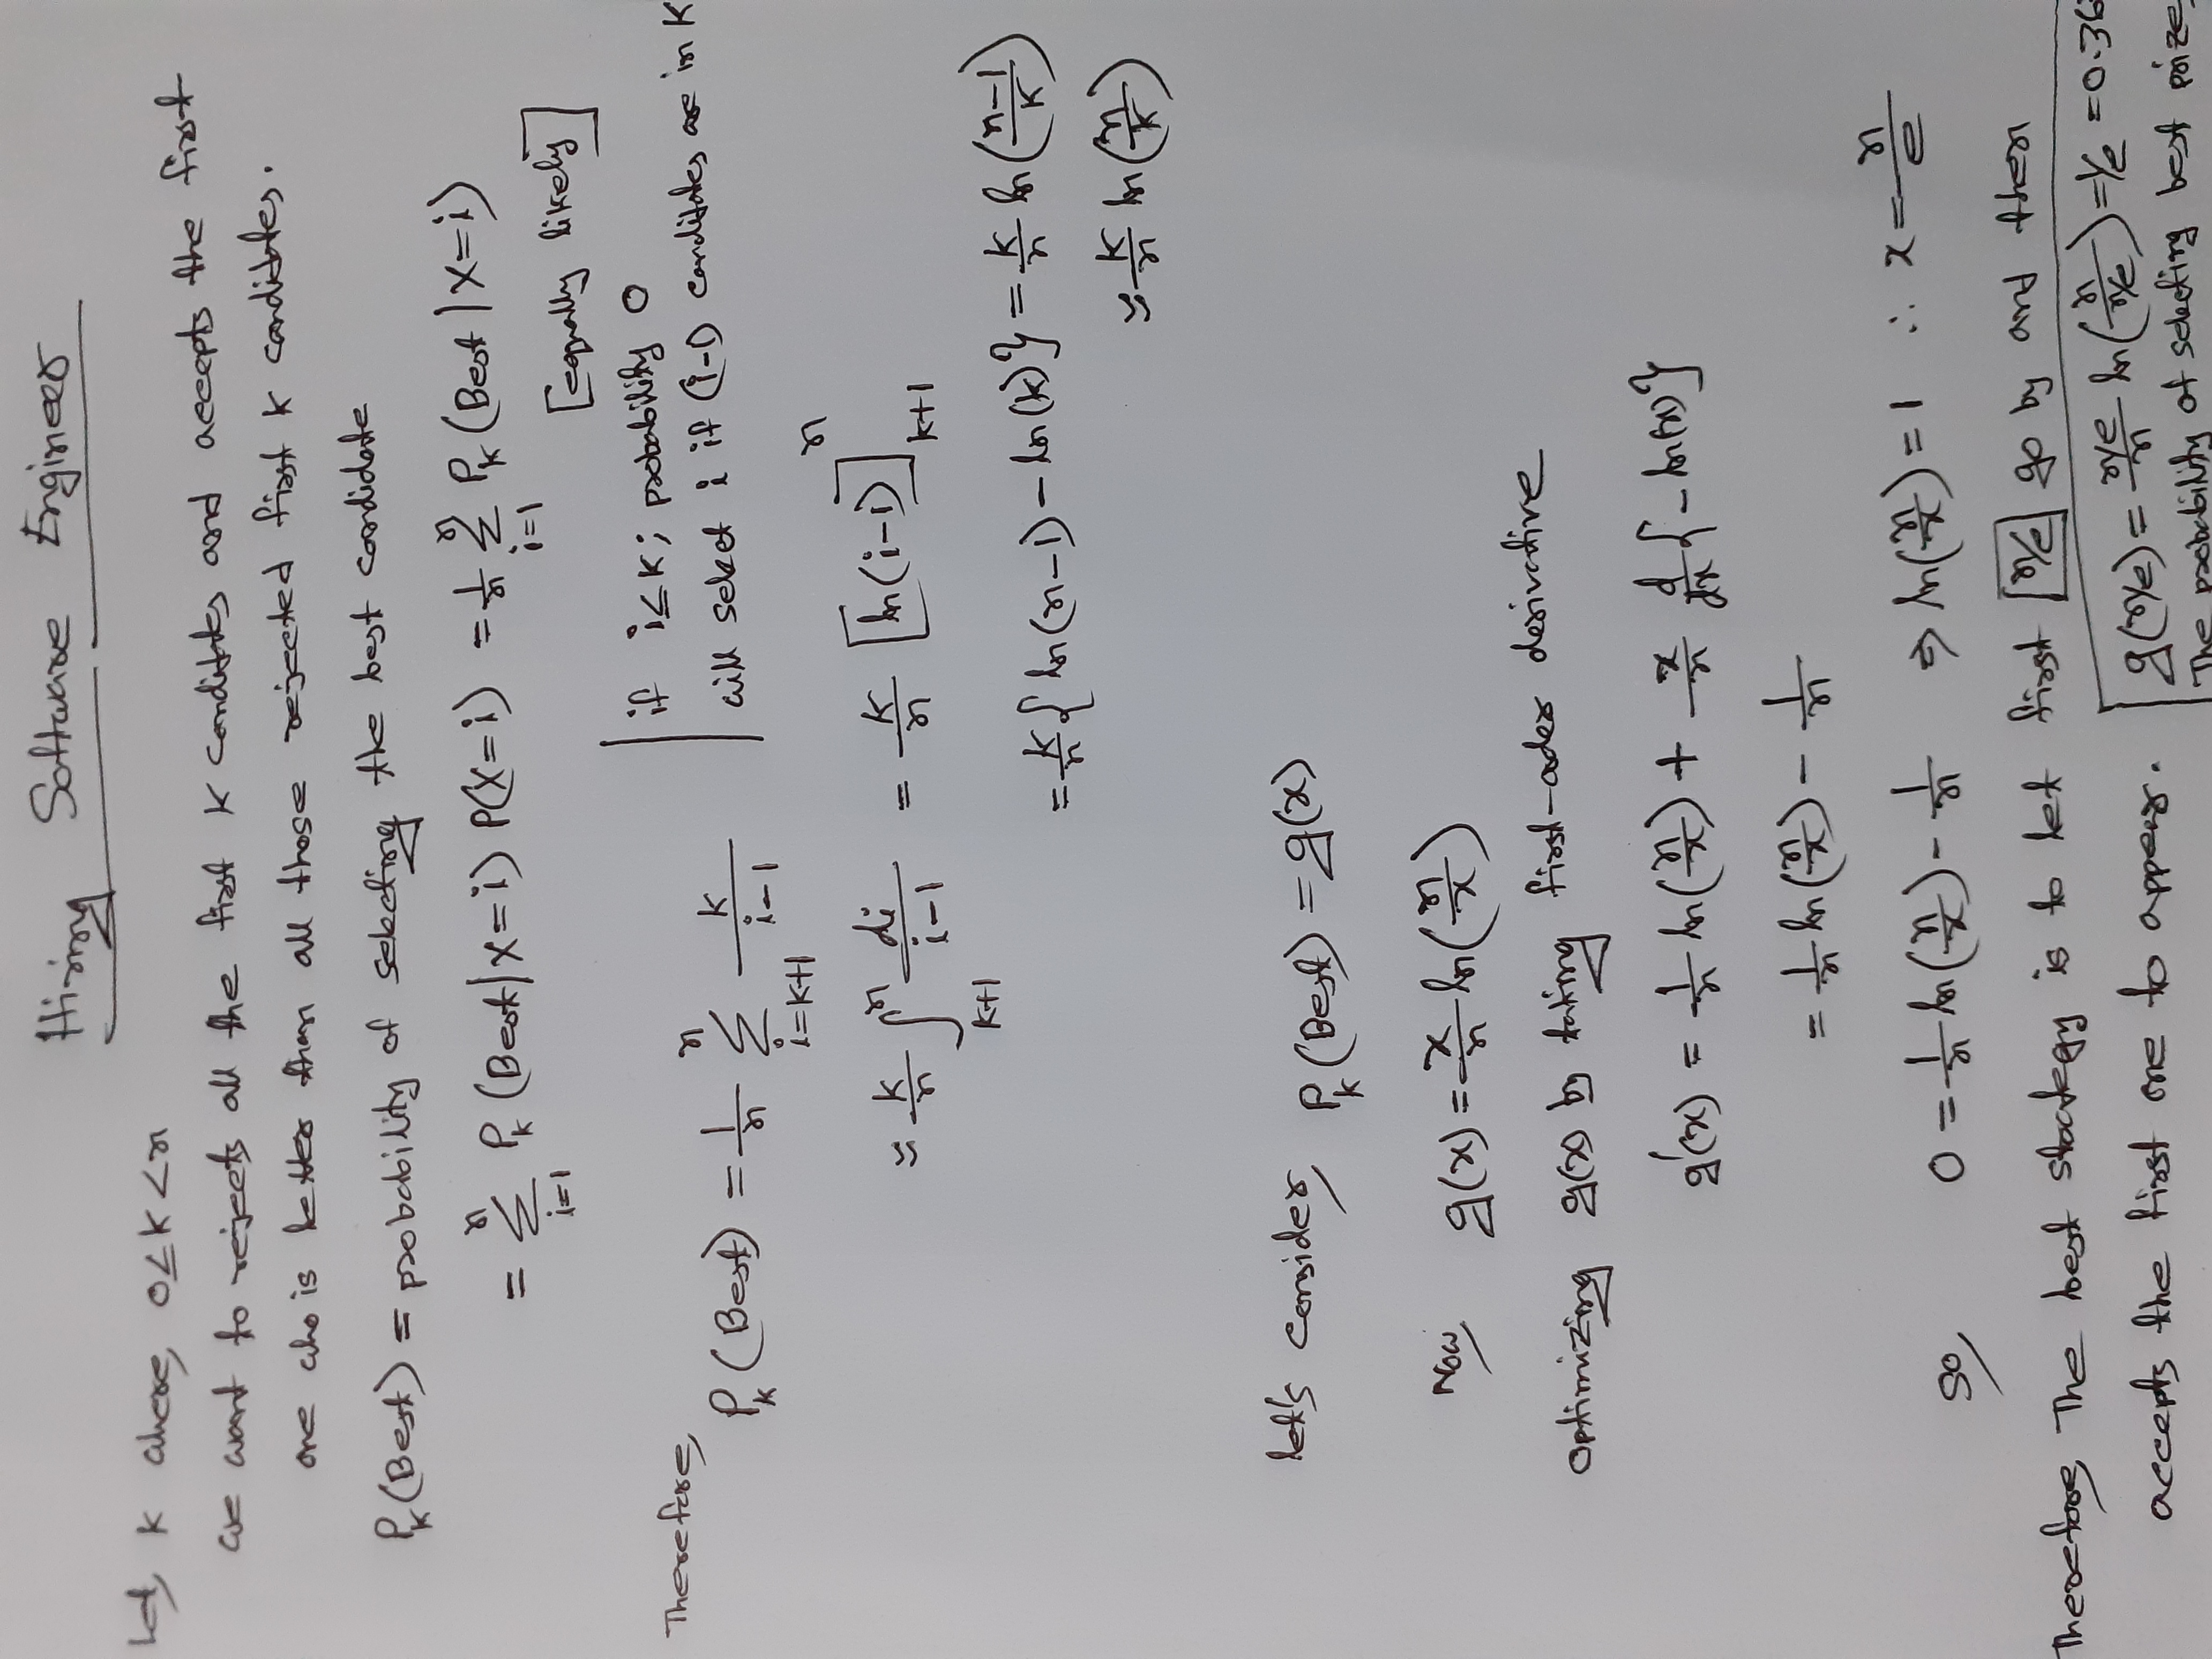 Hiring Software Engineer
Let, K where, 0≤K<n
we want to rejects all the first K candidtes and accepts the first
one who is better than all those rejected first K candidates.
P_K(Best) = probability of selecting the best candidate
= Σ_{i=1}^{n} P_K(Best|X=i) P(X=i) = 1/n Σ_{i=1}^{n} P_K(Best|X=i)
[equally likely]
if i≤K; probability 0
will select i if (i-1) candidates are in K
Therefore,
P_K(Best) = 1/n Σ_{i=K+1}^{n} K/(i-1)
≈ K/n ∫_{K+1}^{n} di/(i-1) = K/n [ln(i-1)]_{K+1}^{n}
= K/n {ln(n-1) - ln(K)} = K/n ln((n-1)/K)
≈ K/n ln(n/K)
let's consider, P_K(Best) = g(x)
Now, g(x) = x/n ln(n/x)
optimizing g(x) by taking first-order derivative
g'(x) = 1/n ln(n/x) + x/n d/dx {-ln(x)}
= 1/n ln(n/x) - 1/n
so, 0 = 1/n ln(n/x) - 1/n ⇒ ln(n/x) = 1 ∴ x = n/e
Therefore, The best strategy is to let first [n/e] go by and then
accepts the first one to appear.
g(n/e) = (n/e)/n ln(n/(n/e)) = 1/e = 0.36
The probability of selecting best prize